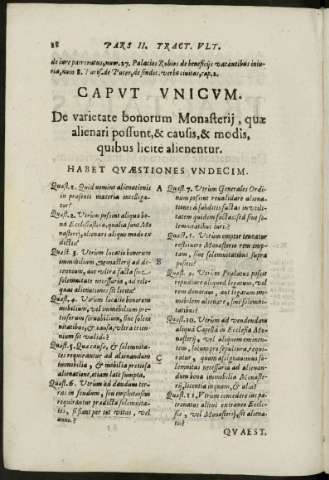 28 PARS II. TRACT. VLT.
de iure patronatus, num. 27. Palacios Rubios de beneficijs vacantibus in iu-
ria, num 8. Paris. de Puteo, de sindic. verbo ciuitas, cap. 2.
CAPVT VNICVM.
De varietate bonorum Monasterij, quæ
alienari possunt, & causis, & modis,
quibus licite alienentur.
HABET QVÆSTIONES VNDECIM.
Quæst. 1. Quid nomine alienationis
in præsenti materia intelliga-
tur?
Quæst. 2. Vtrum possint aliqua bo-
na Ecclesiastica, qualia sunt Mo-
nasterij, alienari aliquo modo ex
dictis?
Quæst. 3. Vtrum locatio bonorum
immobilium, Monasterij ad de-
cennium, aut vltra facta sine
solemnitate necessaria, ad reli-
quas alienationes sit licita?
Quæst. 4. Vtrum locatio bonorum
mobilium, vel immobilium pre-
tiosorum seruabilium, sine solem-
nitatibus, & causa, vltra trien-
nium sit valida?
Quæst. 5. Qua causa, & solemnita-
tes requirantur ad alienandum
immobilia, & mobilia pretiosa
alienatione, etiam late sumpta.
Quæst. 6. Vtrum ad dandum ter-
ras in feudum, seu emphyteusim
requirantur prædicta solemnita-
tes, si fiant per tot vitas, vel
annos?
A
B
C
Quæst. 7. Vtrum Generales Ordi-
num possint reualidare aliena-
tiones à subditis factas inutili-
tatem quidem factas, sed sine so-
lemnitatibus iuris?
Quæst. 8. Vtrum emptor teneatur
restituere Monasterio rem emp-
tam, sine solemnitatibus supra
positis?
Quæst. 9. Vtrum Prælatus possit
repudiare aliquod legatum, vel
donationem, aut legatum im-
mobilem alienare, sine solemni-
tatibus?
Quæst. 10. Vtrum ad vendendam
aliquã Capellã in Ecclesia Mo-
nasterij, vel aliquem eminen-
tem, locum pro sepultura, requi-
ratur, quem assignauimus so-
lemnitas necessaria ad alienan-
dum bona immobilia Monaste-
rij, licentia inquam, & alia?
Quæst. 11. Vtrum concedere ius pa-
tronatus alicui extraneo Eccle-
siæ, vel Monasterij, sit aliena-
tio?
QVAEST.